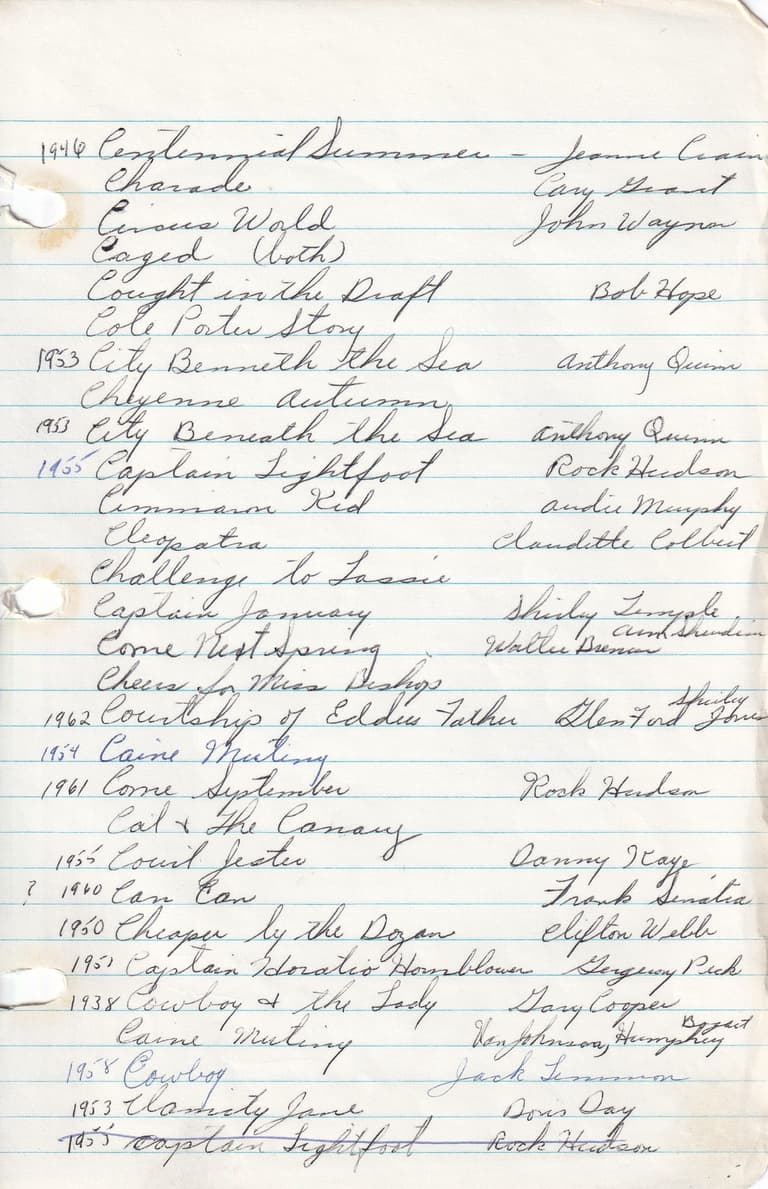 1946 Centennial Summer - Jeanne Crain
Charade Cary Grant
Circus World John Wayne
Caged (both)
Cought in the Draft Bob Hope
Cole Porter Story
1953 City Benneth the Sea Anthony Quinn
Cheyenne Autumn
1953 City Beneath the Sea Anthony Quinn
1955 Captain Lightfoot Rock Hudson
Cimmaron Kid Audie Murphy
Cleopatra Claudette Colbert
Challenge to Lassie
Captain January Shirley Temple
Come Next Spring Walter Brennan Ann Sheridan
Cheers for Miss Bishop
1962 Courtship of Eddies Father Glen Ford Shirley Jones
1954 Caine Mutiny
1961 Come September Rock Hudson
Cat & The Canary
1955 Court Jester Danny Kaye
? 1960 Can Can Frank Sinatra
1950 Cheaper by the Dozan Clifton Webb
1951 Captain Horatio Hornblower Gergery Peck
1938 Cowboy & the Lady Gary Cooper
Caine Mutiny Van Johnson, Humphrey Bogart
1958 Cowboy Jack Lemmon
1953 Clamity Jane Doris Day
1955 Captain Lightfoot Rock Hudson